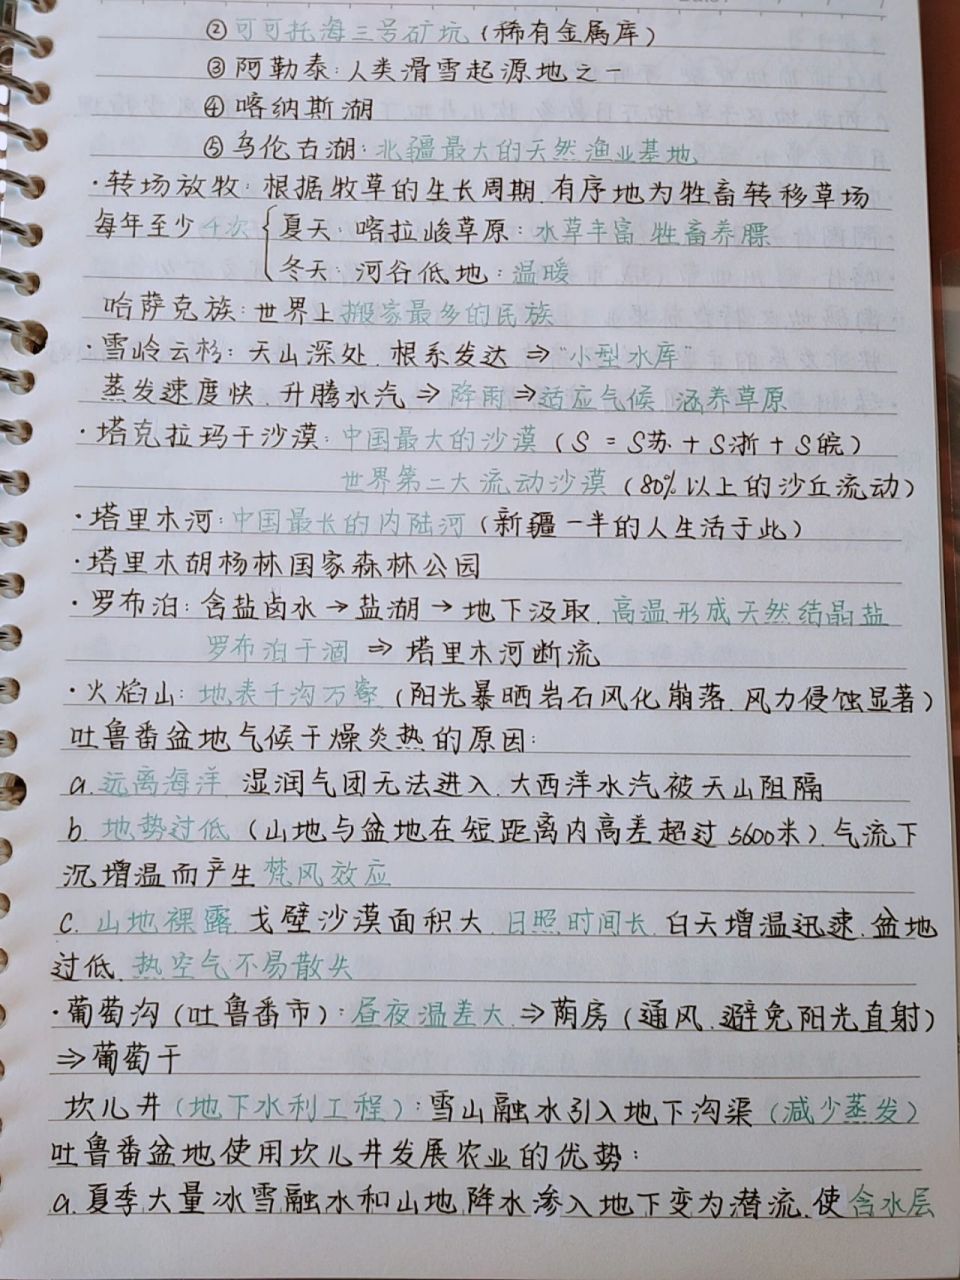 ②可可托海三号矿坑(稀有金属库)
③阿勒泰:人类滑雪起源地之一
④喀纳斯湖
⑤乌伦古湖:北疆最大的天然渔业基地
·转场放牧:根据牧草的生长周期,有序地为牲畜转移草场
每年至少4次{夏天 喀拉峻草原:水草丰富 牲畜养膘
冬天 河谷低地:温暖
哈萨克族:世界上搬家最多的民族
·雪岭云杉:天山深处,根系发达⇒"小型水库"
蒸发速度快,升腾水汽⇒降雨⇒适应气候 涵养草原
·塔克拉玛干沙漠:中国最大的沙漠(S=S苏+S浙+S皖)
世界第二大流动沙漠(80%以上的沙丘流动)
·塔里木河:中国最长的内陆河(新疆一半的人生活于此)
·塔里木胡杨林国家森林公园
·罗布泊:含盐卤水→盐湖→地下汲取,高温形成天然结晶盐
罗布泊干涸⇒塔里木河断流
·火焰山:地表千沟万壑(阳光暴晒岩石风化崩落,风力侵蚀显著)
吐鲁番盆地气候干燥炎热的原因:
a.远离海洋,湿润气团无法进入,大西洋水汽被天山阻隔
b.地势过低(山地与盆地在短距离内高差超过5600米),气流下
沉增温而产生梵风效应
c.山地裸露,戈壁沙漠面积大,日照时间长,白天增温迅速,盆地
过低,热空气不易散失
·葡萄沟(吐鲁番市):昼夜温差大⇒荫房(通风,避免阳光直射)
⇒葡萄干
坎儿井(地下水利工程):雪山融水引入地下沟渠(减少蒸发)
吐鲁番盆地使用坎儿井发展农业的优势:
a.夏季大量冰雪融水和山地降水渗入地下变为潜流,使含水层